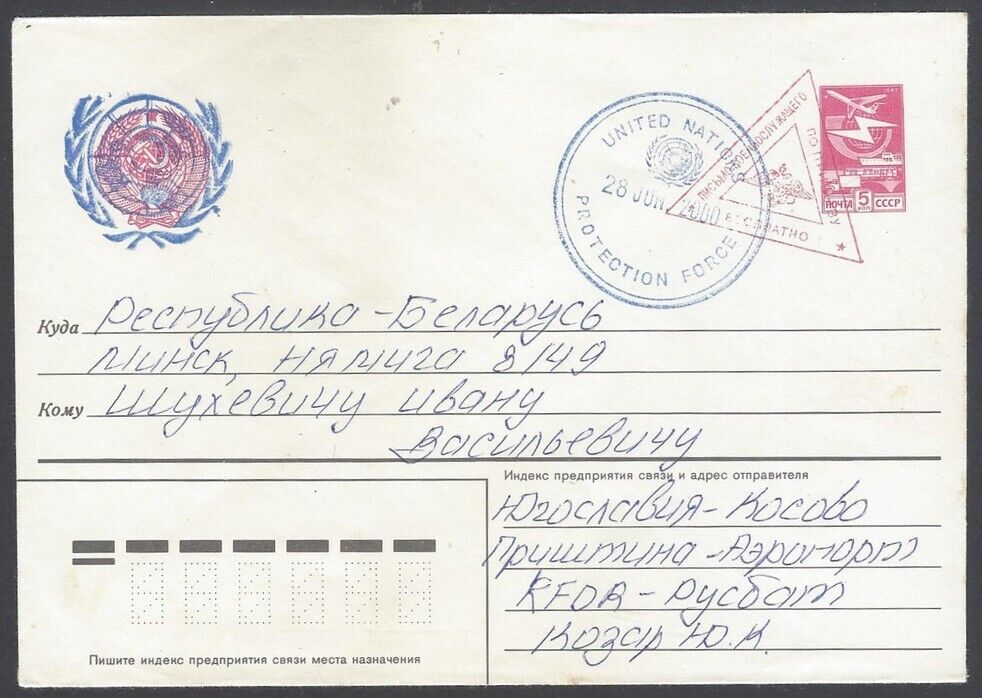 UNITED NATIONS
28 JUN 2000
PROTECTION FORCE
ПИСЬМО ВОЕННОСЛУЖАЩЕГО
БЕСПЛАТНО
1982
ПОЧТА 5 КОП СССР
Куда Республика-Беларусь
Минск, Нямига 8/49
Кому Шухевичу Ивану
Васильевичу
Индекс предприятия связи и адрес отправителя
Югославия-Косово
Приштина-Аэропорт
KFOR-Русбат
Козар Ю.К.
Пишите индекс предприятия связи места назначения